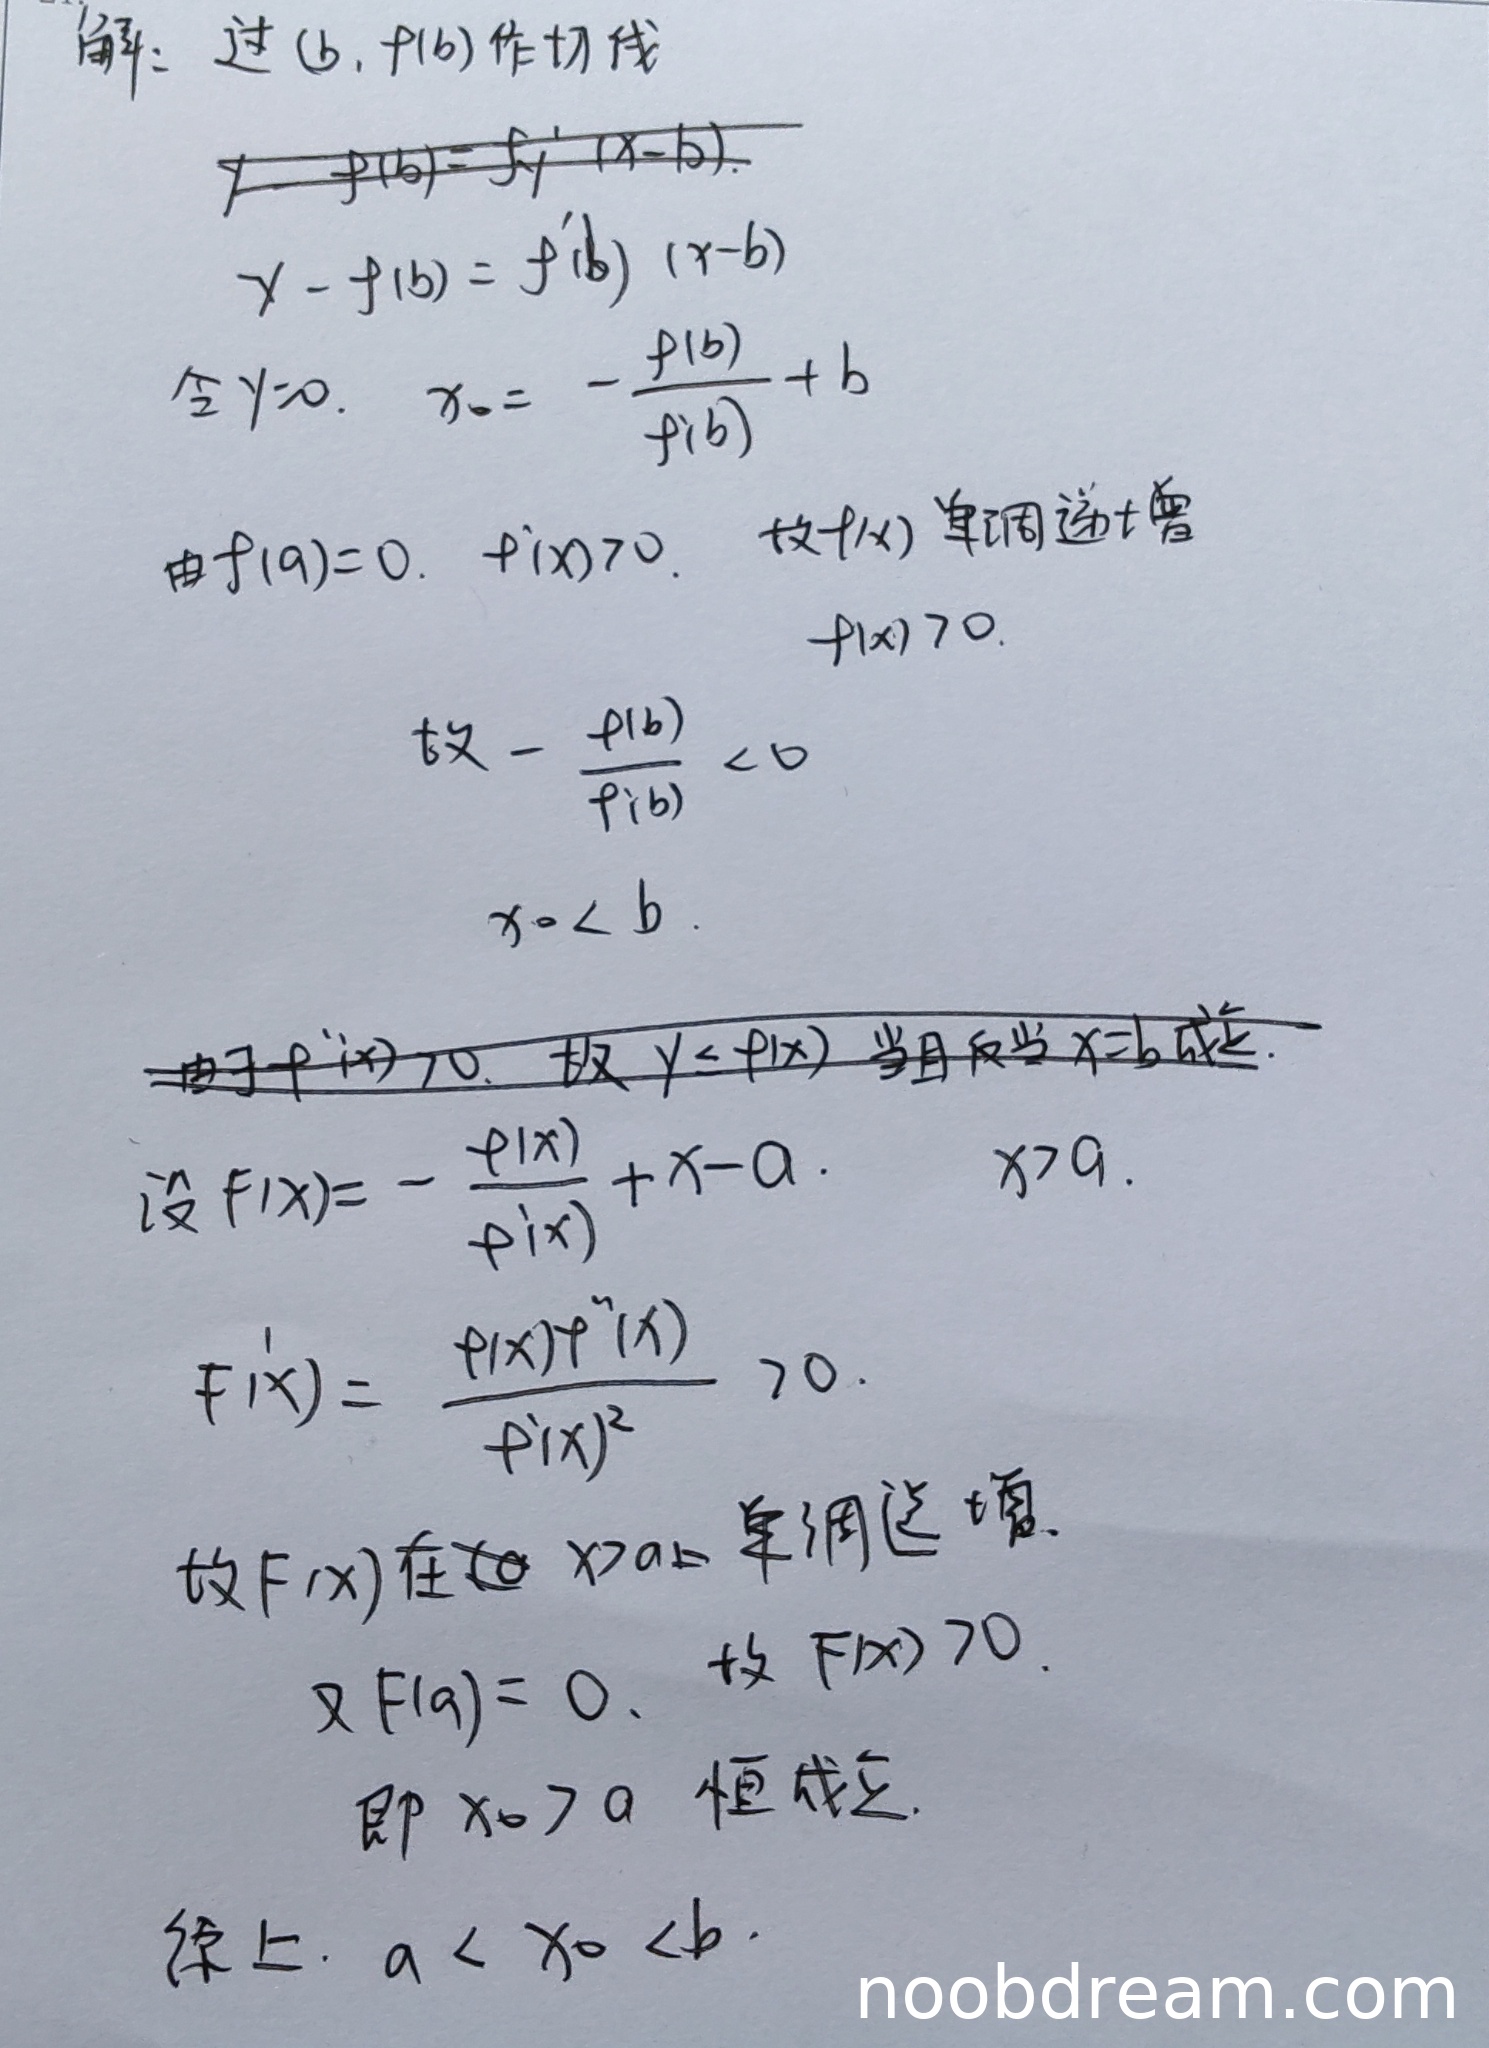 解: 过(b, f(b)作切线
y - f(b) = fy' (x-b).
y - f(b) = f'(b) (x-b)
令y=0. x₀ = - f(b)/f'(b) + b
由f(a)=0. f'(x)>0. 故f(x) 单调递增
f(x) > 0.
故 - f(b)/f'(b) < 0
x₀ < b.
由于 f''(x) > 0. 故 y ≤ f(x) 当且反当 x=b 成立.
设 F(x) = - f(x)/f'(x) + x - a. x > a.
F'(x) = f(x)f''(x)/f'(x)² > 0.
故F(x)在 x>a上 单调递增.
又 F(a) = 0. 故 F(x) > 0.
即 x₀ > a 恒成立.
综上. a < x₀ < b.
noobdream.com